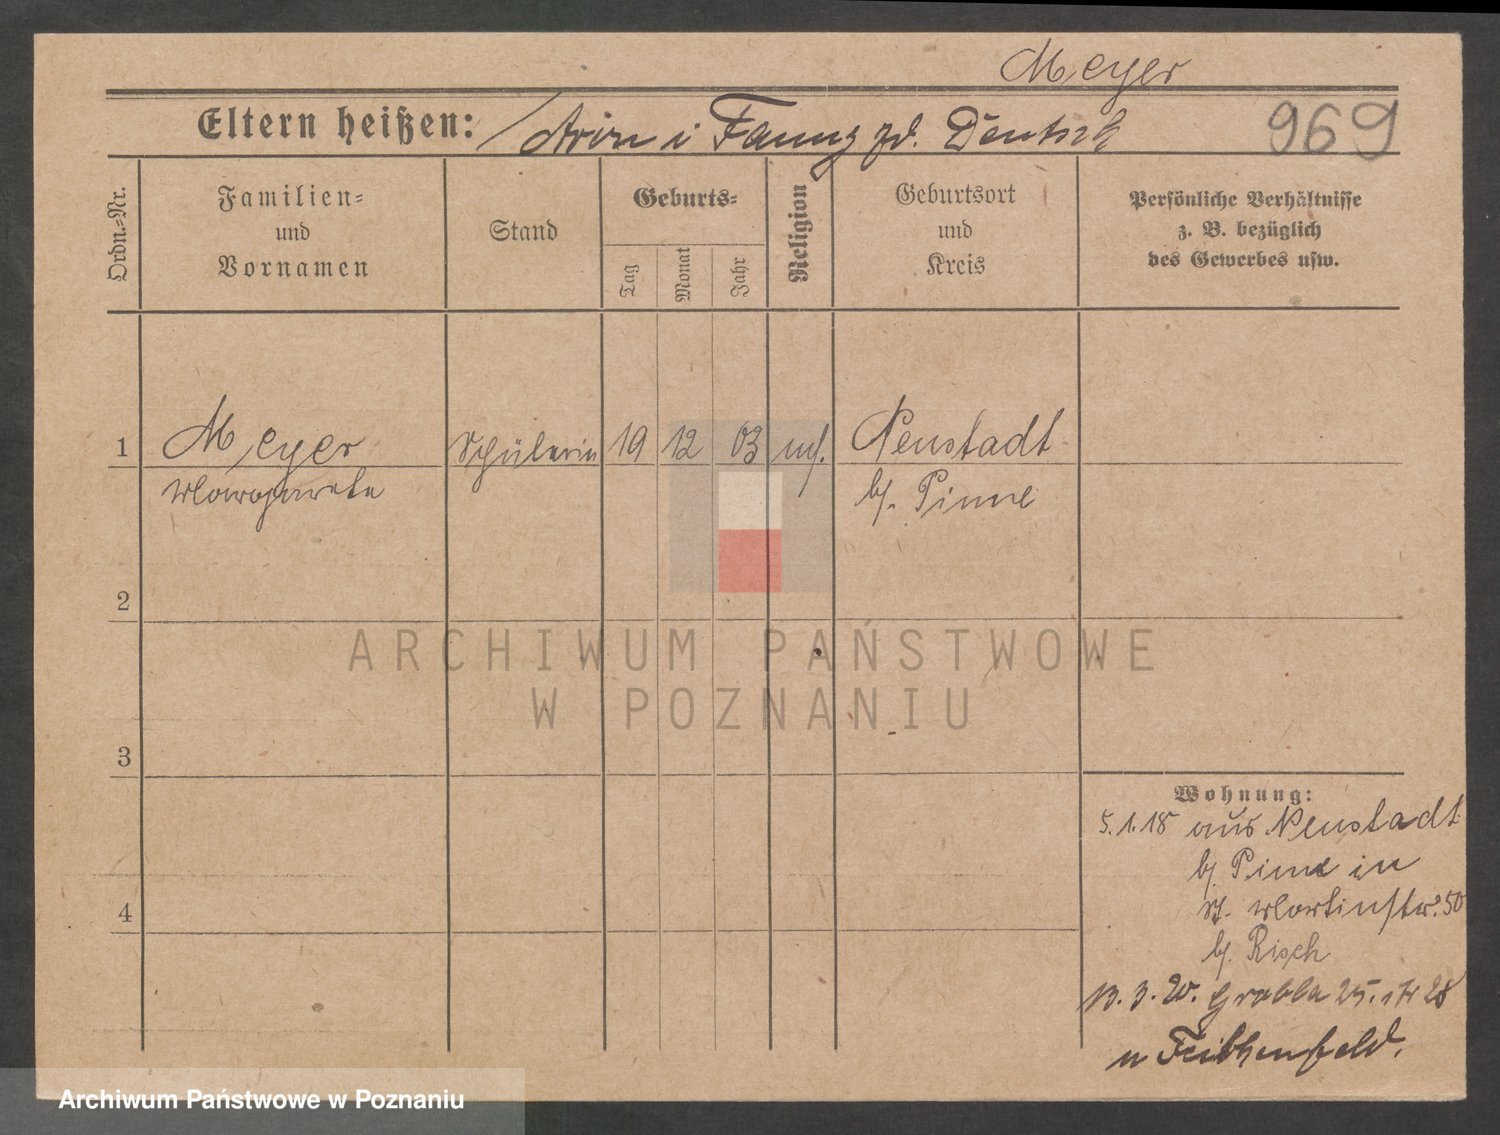 Meyer
Eltern heißen: Aron i Fanny zd. Deutsch
969
Ordn.-Nr.
Familien-
und
Vornamen
Stand
Geburts-
Tag
Monat
Jahr
Religion
Geburtsort
und
Kreis
Persönliche Verhältnisse
z. B. bezüglich
des Gewerbes usw.
1 Meyer Schülerin 19 12 03 mos. Neustadt
Margarete b/. Pinne
2
ARCHIWUM PAŃSTWOWE
W POZNANIU
3
Wohnung:
5.1.18 aus Neustadt
b/ Pinne in
St. Martinstr. 50
4
b/. Risch
13. 3. 20. Grobla 25.
u
Archiwum Państwowe w Poznaniu